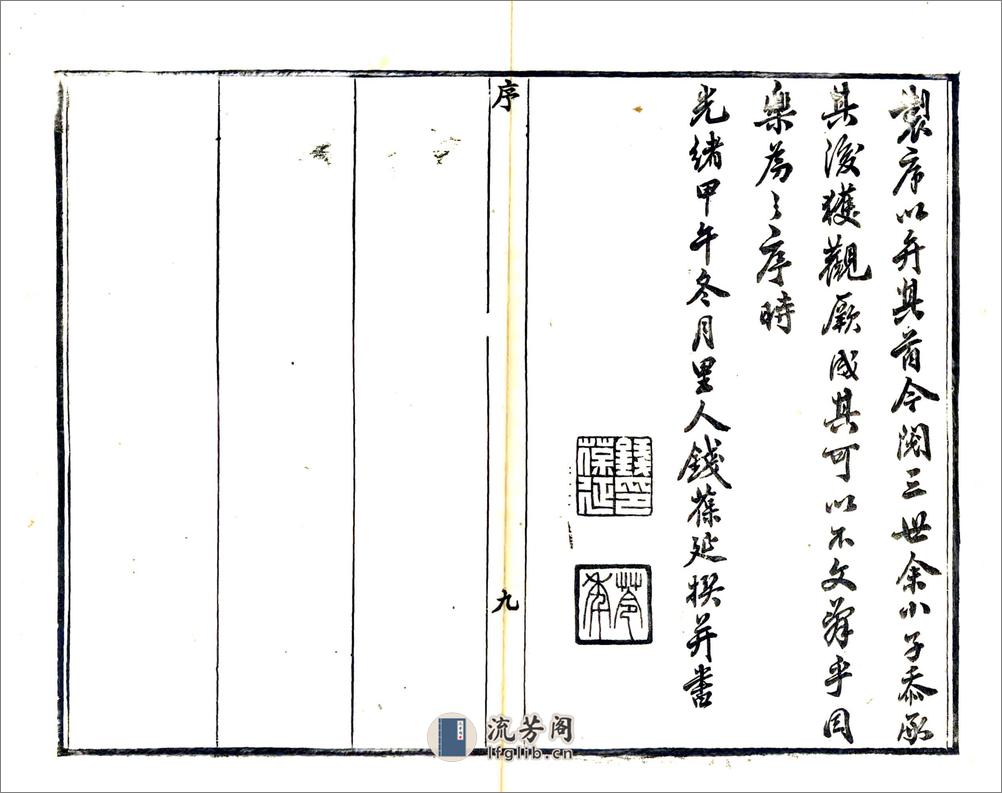 製序以弁其首今閱三世余小子忝承
其後獲觀厥成其可以不文辭乎因
樂爲之序時
光緒甲午冬月里人錢葆延撰并書
錢印葆延
序
九
流芳阁
lfglib.cn